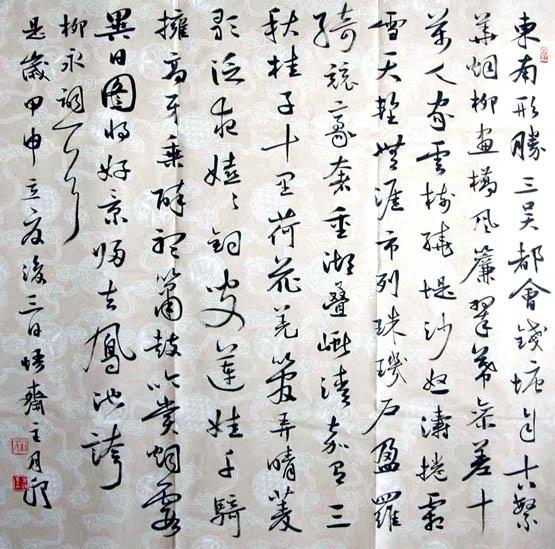 東南形勝三吳都會錢塘自古繁
華烟柳畫橋風簾翠幕參差十
萬人家雲樹繞堤沙怒濤捲霜
雪天塹無涯市列珠璣戶盈羅
綺競豪奢重湖疊巘清嘉有三
秋桂子十里荷花羌管弄晴菱
歌泛夜嬉〻釣叟蓮娃千騎
擁高牙乘醉聽簫鼓吟賞烟霞
異日圖將好景歸去鳳池誇
柳永詞一首
是歲甲申立夏後三日悟齋主月